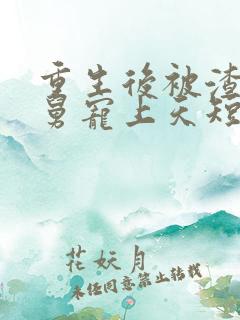 重生後被渣
舅寵上天短
花妖月
未經同意禁止轉載